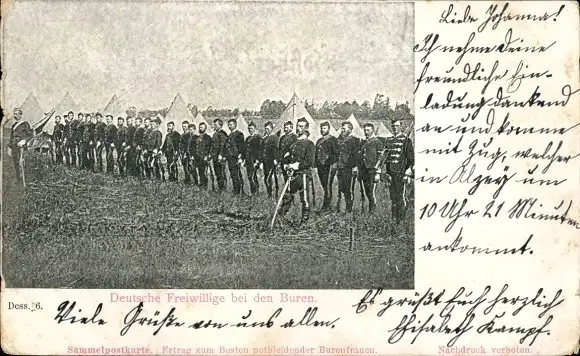 Liebe Johanna!
Ich nehme Deine
freundliche Ein-
ladung dankend
an und komme
mit Zug, welcher
in Alzey um
10 Uhr 21 Minuten
ankommt.
Es grüßt Euch herzlich
Elisabeth Kampf.
Viele Grüße von uns allen.
Deutsche Freiwillige bei den Buren.
Dess. 6.
Sammelpostkarte. Ertrag zum Besten notbleidender Burenfrauen.
Nachdruck verboten.